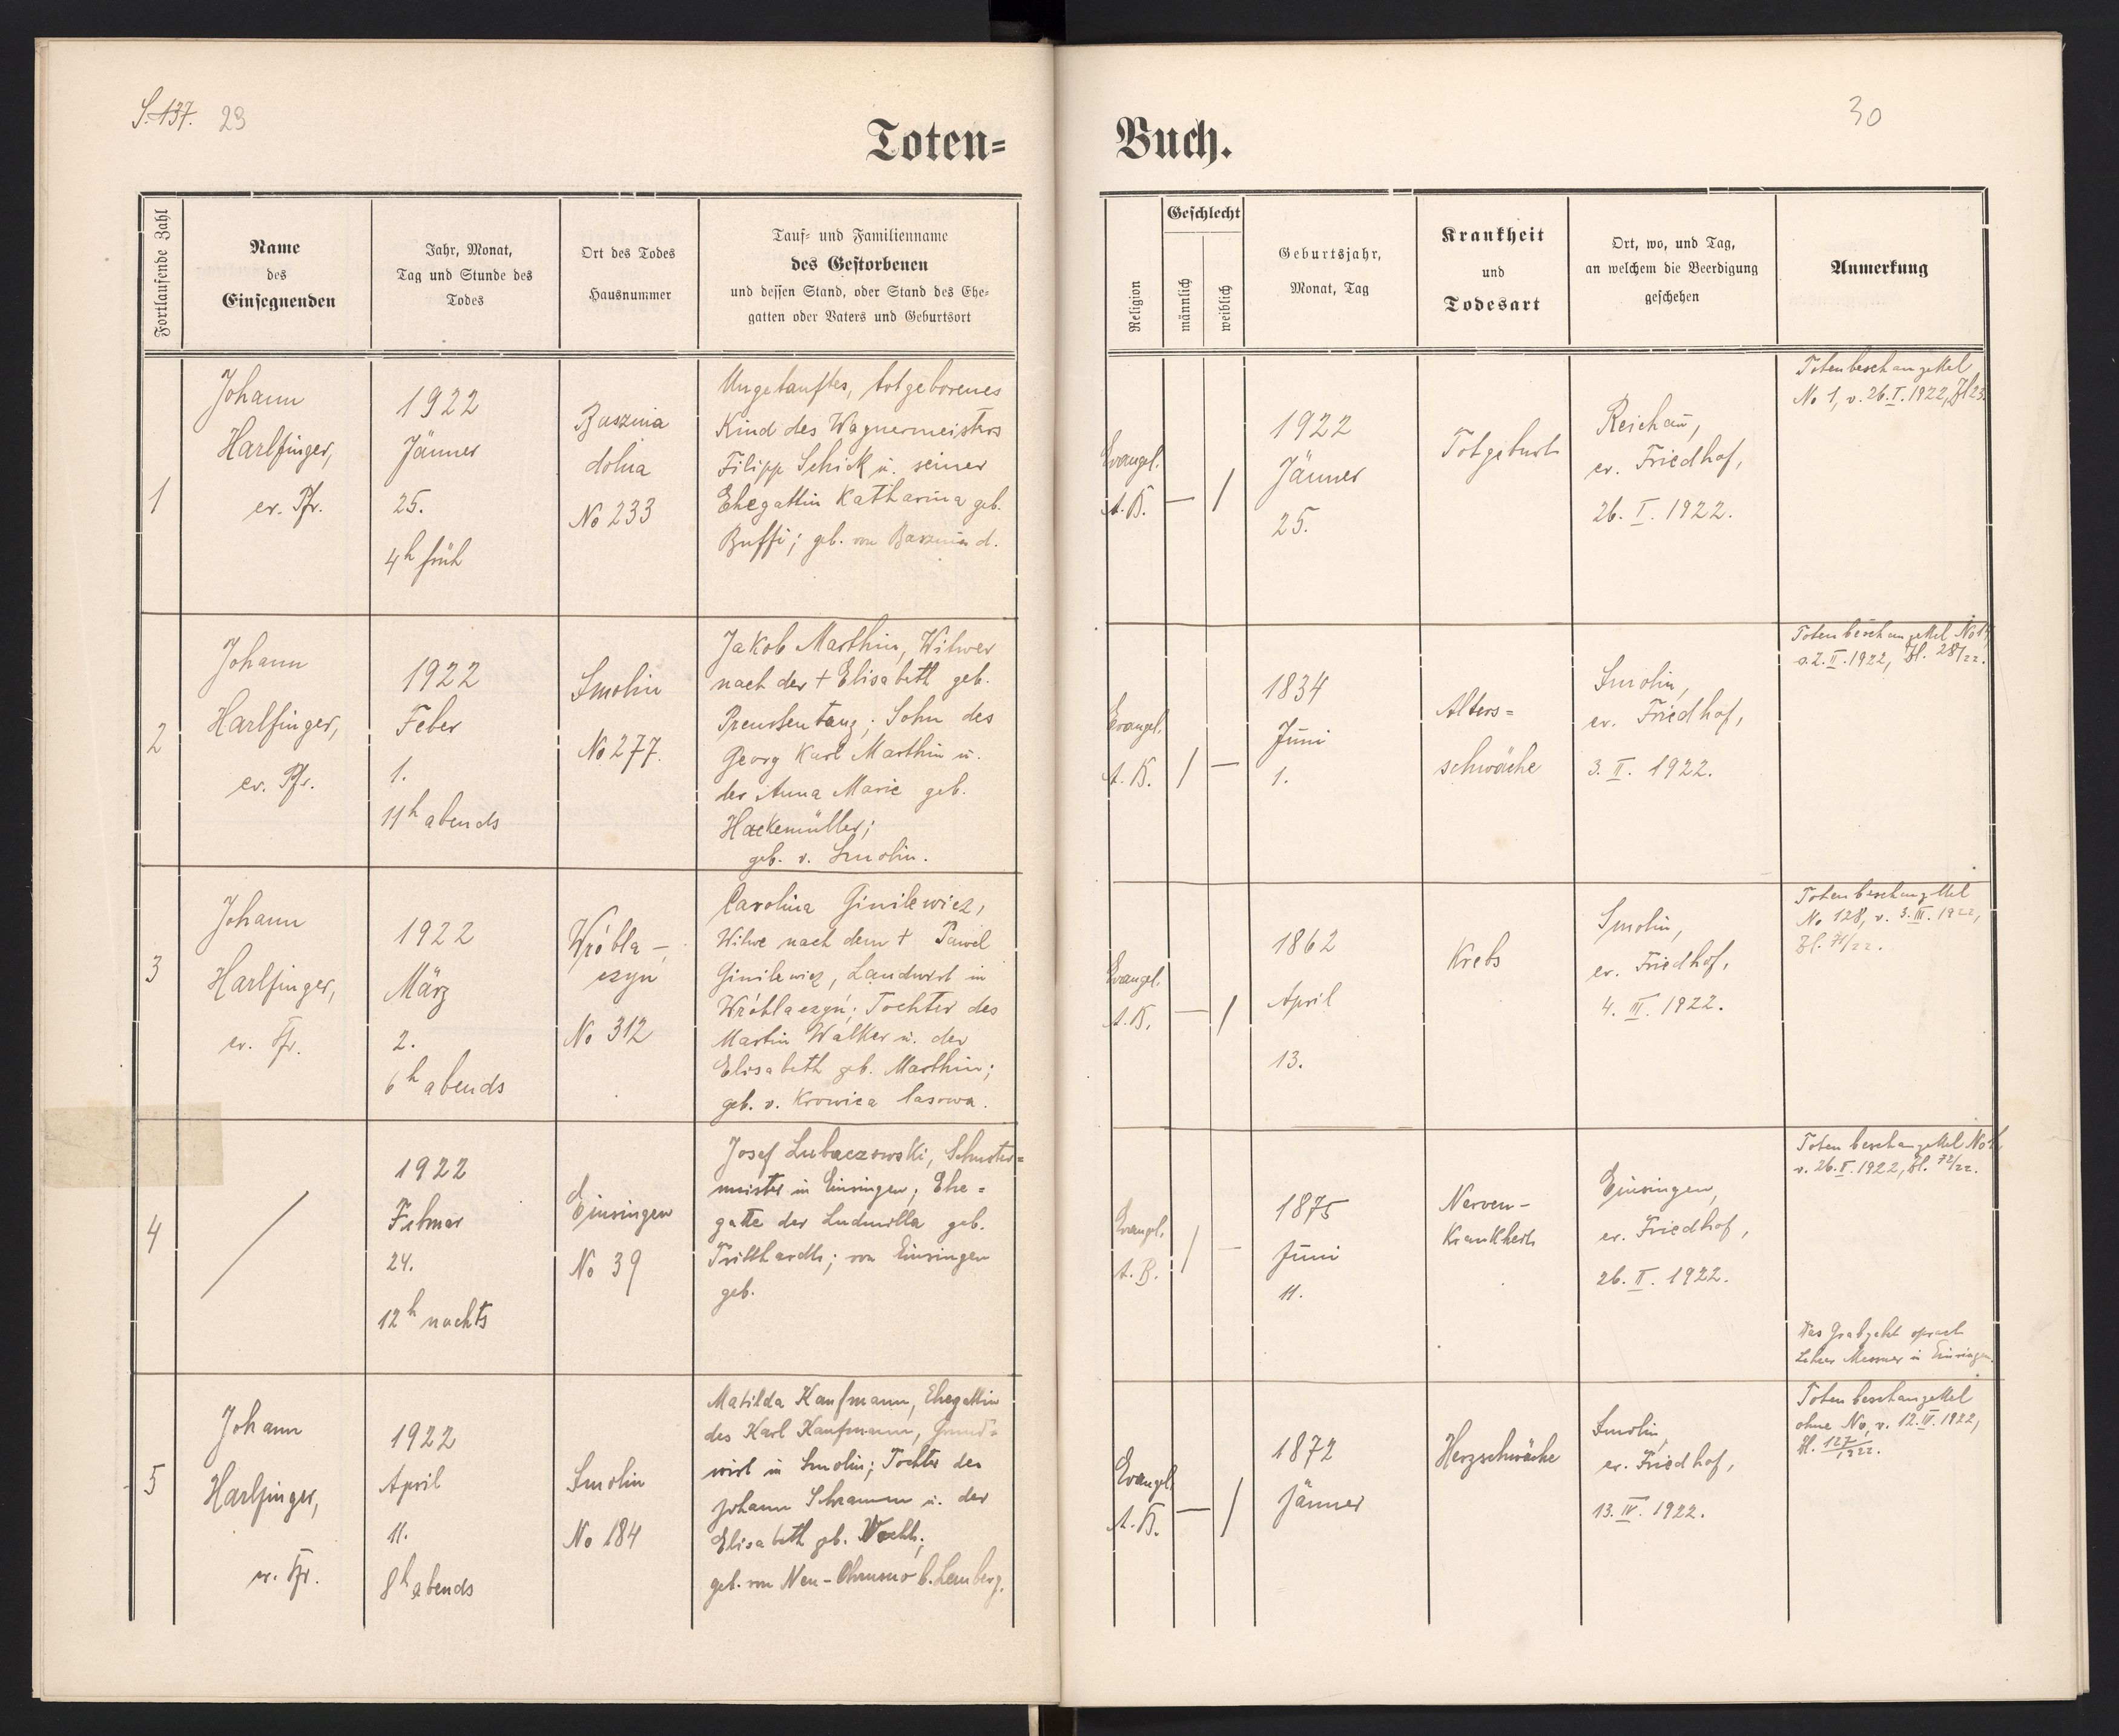 S. 137. 29
30
Toten=
Buch.
Fortlaufende Zahl
Name
des
Einsegnenden
Jahr, Monat,
Tag und Stunde des
Todes
Ort des Todes
Hausnummer
Tauf= und Familienname
des Gestorbenen
und dessen Stand, oder Stand des Ehe=
gatten oder Vaters und Geburtsort
Religion
Geschlecht
männlich
weiblich
Geburtsjahr,
Monat, Tag
Krankheit
und
Todesart
Ort, wo, und Tag,
an welchem die Beerdigung
geschehen
Anmerkung
1
Johann
Harlfinger,
ev. Pfr.
1922
Jänner
25.
4h früh
Basznia
dolna
No 233
Ungetauftes, totgeborenes
Kind des Wagnermeisters
Filipp Schick u. seiner
Ehegattin Katharina geb.
geb. von Basznia d.
Evangel.
A.B.
—
/
1922
Jänner
25.
Totgeburt
Reichau,
ev. Friedhof,
26. I. 1922.
Totenbeschauzettel
No 1, v. 26. I. 1922, Zl 23.
2
Johann
Harlfinger,
ev. Pfr.
1922
Feber
1.
11h abends
Smolin
No 277.
Jakob Marthin, Witwer
nach der + Elisabeth geb.
Sohn des
Georg Karl Marthin u.
der Anna Marie geb.
Hackemüller;
geb. v. Smolin.
Evangel.
A.B.
/
—
1834
Juni
1.
Alters=
schwäche
Smolin,
ev. Friedhof,
3. II. 1922.
Totenbeschauzettel No
v. 2. II. 1922, Zl. 28/22.
3
Johann
Harlfinger,
ev. Pfr.
1922
März
2.
6h abends
Wróbla-
czyn
No 312
Carolina Ginilewicz,
Witwe nach dem + Pawel
Ginilewicz, Landwirt in
Wróblaczyn; Tochter des
Martin Walker u. der
Elisabeth geb. Marthin;
geb. v. Krowica lasowa.
Evangel.
A.B.
—
/
1862
April
13.
Krebs
Smolin,
ev. Friedhof,
4. III. 1922.
Totenbeschauzettel
No 128, v. 3. III. 1922,
Zl. 71/22.
4
/
1922
Februar
24.
12h nachts
Einsingen
No 39
Josef Lubaczowski, Schuster=
meister in Einsingen; Ehe=
gatte der Ludmilla geb.
Tritthardt; von Einsingen
geb.
Evangel.
A.B.
/
—
1875
Juni
11.
Nerven-
Krankheit
Einsingen,
ev. Friedhof,
26. II. 1922.
Totenbeschauzettel No
v. 26. II. 1922, Zl. 72/22.
Das Grabgebet sprach
Lehrer Messner in Einsingen.
5
Johann
Harlfinger,
ev. Pfr.
1922
April
11.
8h abends
Smolin
No 184
Matilda Kaufmann, Ehegattin
des Karl Kaufmann, Grund=
wirt in Smolin; Tochter des
Johann Schramm u. der
Elisabeth geb.
geb. von Neu-Chrusno b. Lemberg.
Evangel.
A.B.
—
/
1872
Jänner
Herzschwäche
Smolin,
ev. Friedhof,
13. IV. 1922.
Totenbeschauzettel
ohne No, v. 12. IV. 1922,
Zl. 127/1922.